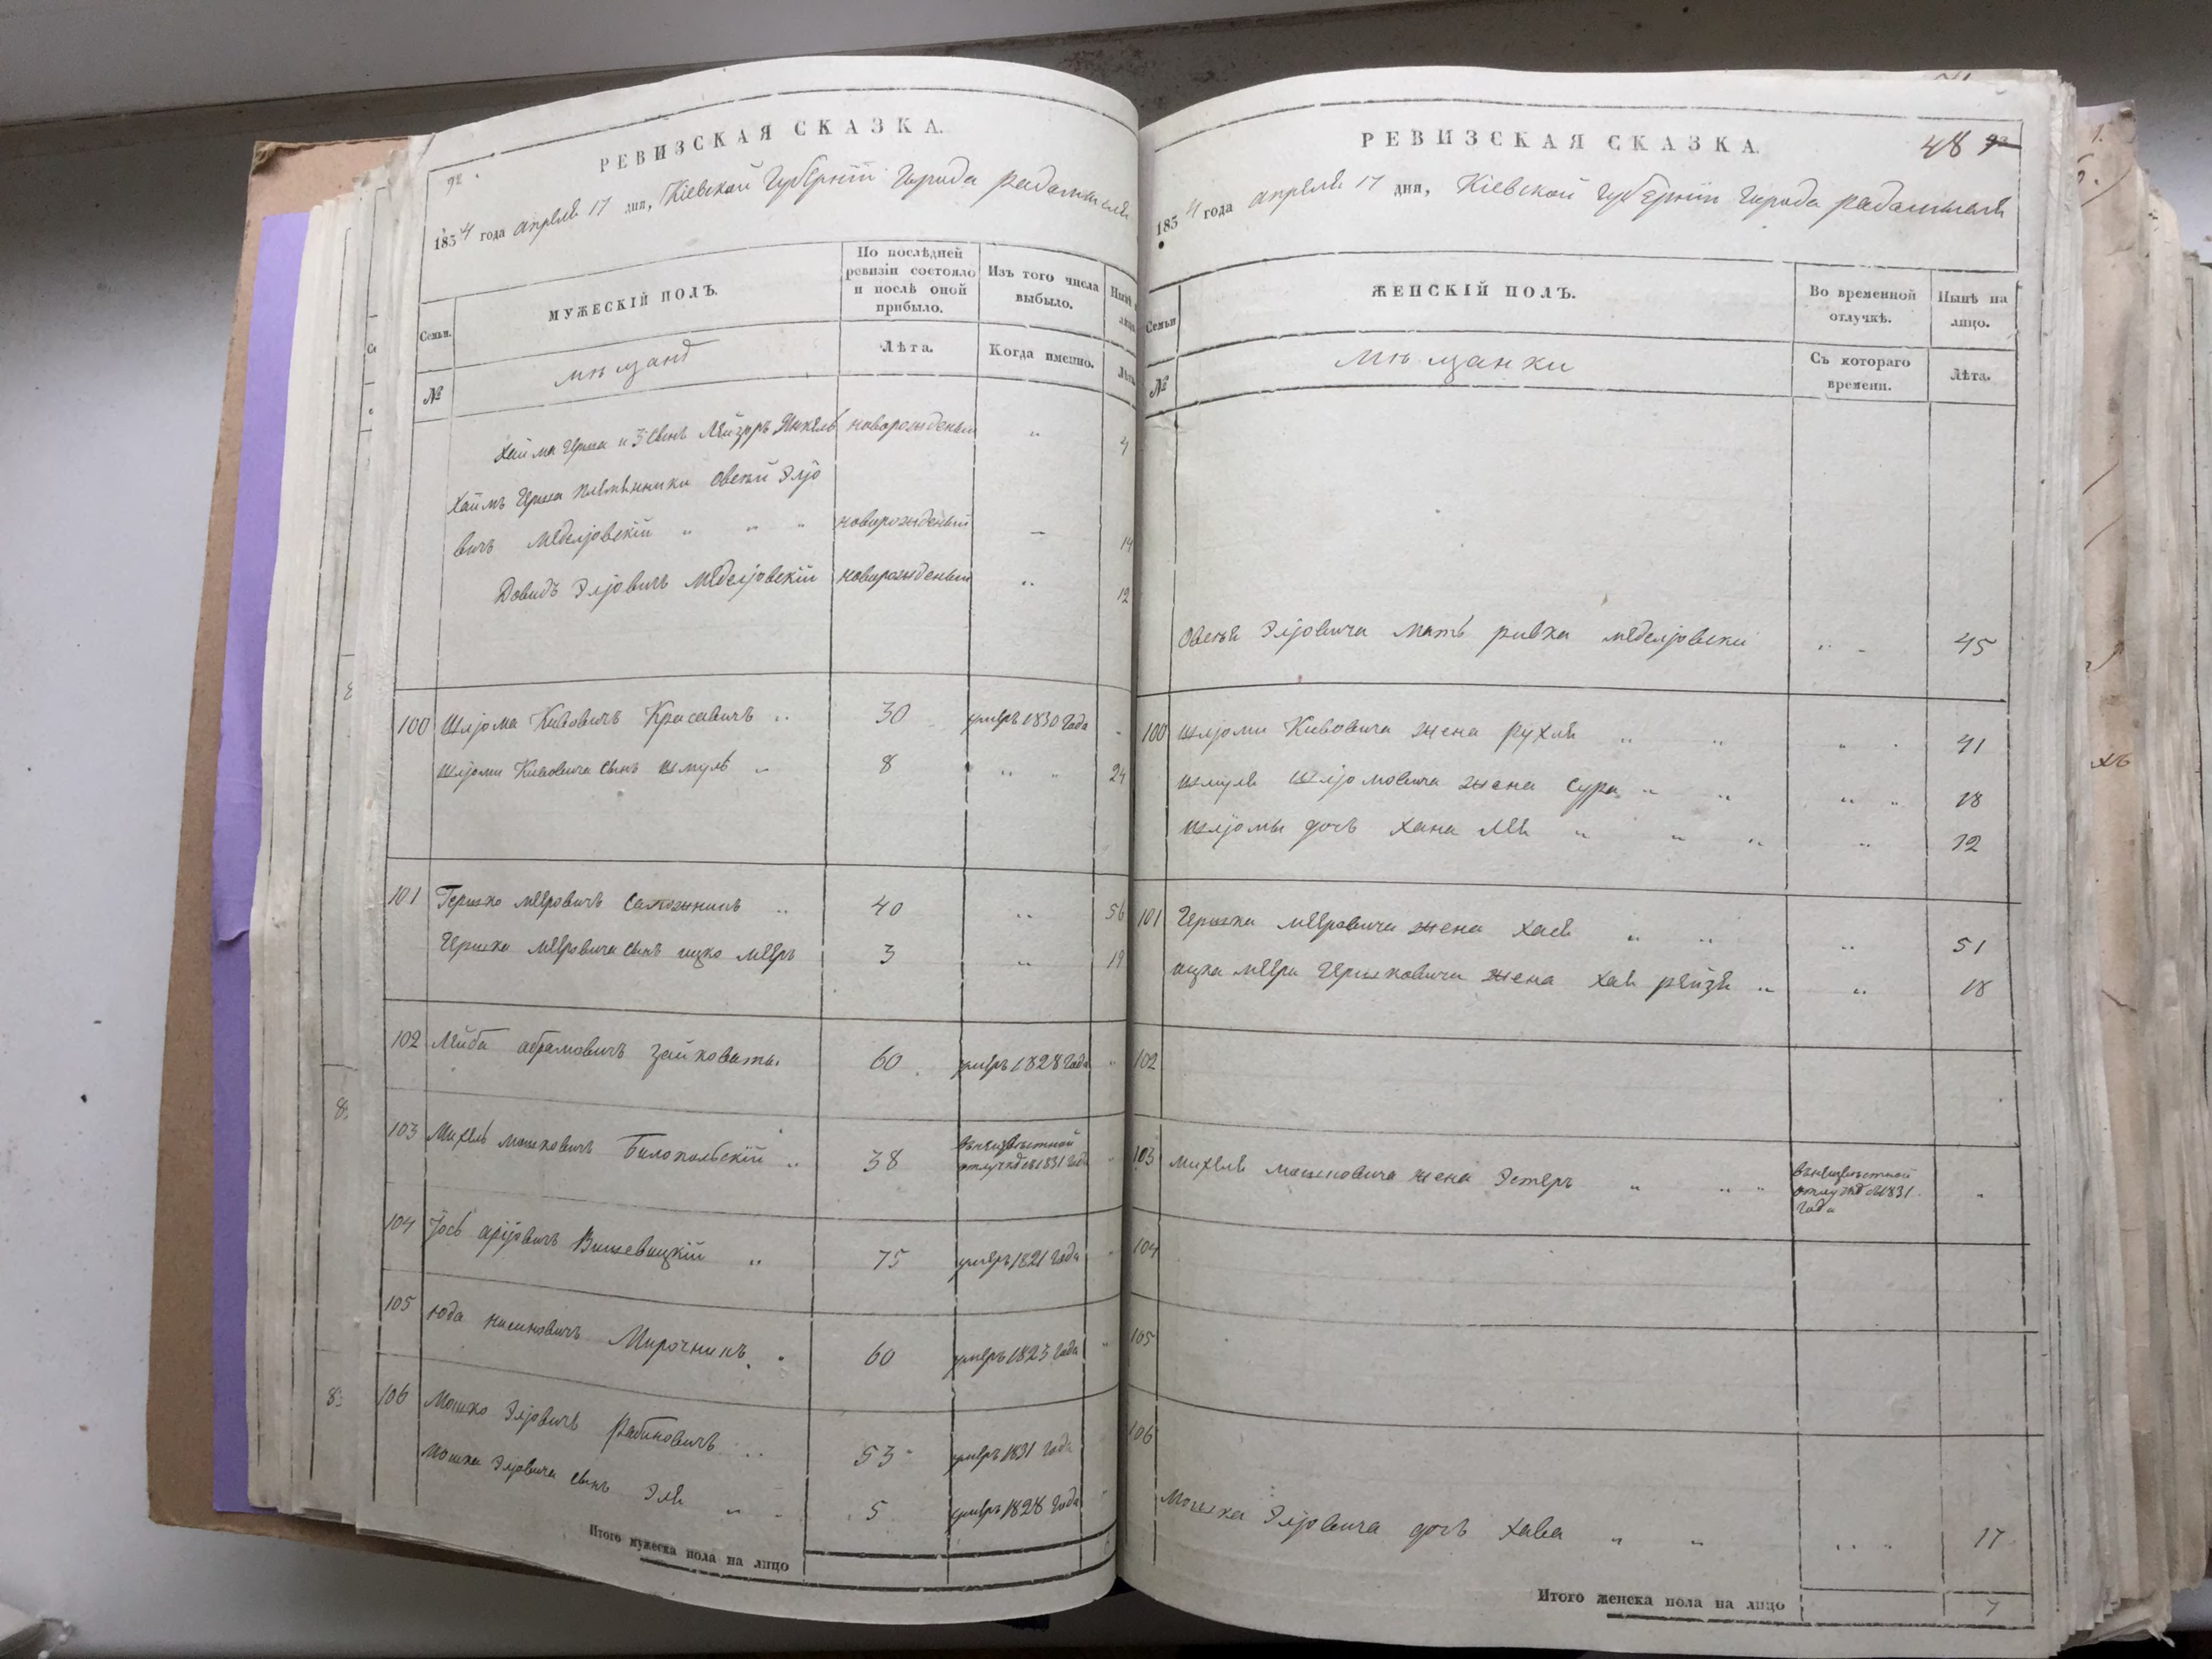 РЕВИЗСКАЯ СКАЗКА.
1834 года апреля 17 дня, Кіевской Губерніи Города Радомысля
Семьи.
МУЖЕСКІЙ ПОЛЪ.
По послѣдней ревизіи состояло и послѣ оной прибыло.
Изъ того числа выбыло.
№
мѣщанъ
Лѣта.
Когда именно.
Лѣта
Хаима Герша и 3 сынъ Лейзоръ Янкель новорожденый " 4
Хаимъ Герша племенники Овсѣй Эліо
вичъ Меделіовскій " " " новорожденый — 14
Довидъ Эліовичъ Меделіовскій новорожденый " 12
100 Шліома Кивовичъ Красавичъ " 30 умеръ 1830 Года "
Шліоми Кивовича сынъ Шмуль " 8 " " 24
101 Гершко Мееровичъ Сапожникъ " 40 " 56
Гершка Мееровича сынъ ицко Мееръ 3 " 19
102 Лейба абрамовичъ Зайковаты. 60 умеръ 1828 Года "
103 Михель мошковичъ Билопольскій " 38 въ неизвѣстной отлучкѣ съ 1831 Года "
104 Іось аріовичъ Вишевицкій " 75 умеръ 1821 Года "
105 Юда нисиновичъ Мирочникъ " 60 умеръ 1823 Года "
106 Мошко Эліовичъ Рабиновичъ " 53 умеръ 1831 Года
Мошка Эліовича сынъ Эли " " 5 умеръ 1828 Года "
Итого мужеска пола на лицо
РЕВИЗСКАЯ СКАЗКА.
48
1834 года апреля 17 дня, Кіевской Губерніи Города Радомысля
Семьи
ЖЕНСКІЙ ПОЛЪ.
Во временной отлучкѣ.
Нынѣ на лицо.
№
мѣщанки
Съ котораго времени.
Лѣта.
Овсѣя Эліовича мать ривка меделіовски " - 45
100 Шліоми Кивовича жена рухля " " " . 41
Шмуля Шліомовича жена Сура " " " " 18
Шліомы дочь Хана Лея " " " " 12
101 Гершка Мееровича жена Хая " " " 51
ицка меера Гершковича жена Хая рейзя " " 18
102
103 Михеля мошковича жена Эстеръ " " " въ неизвѣстной отлучкѣ съ 1831 Года "
104
105
106
Мошка Эліовича дочь Хава " " " " 17
Итого женска пола на лицо 7